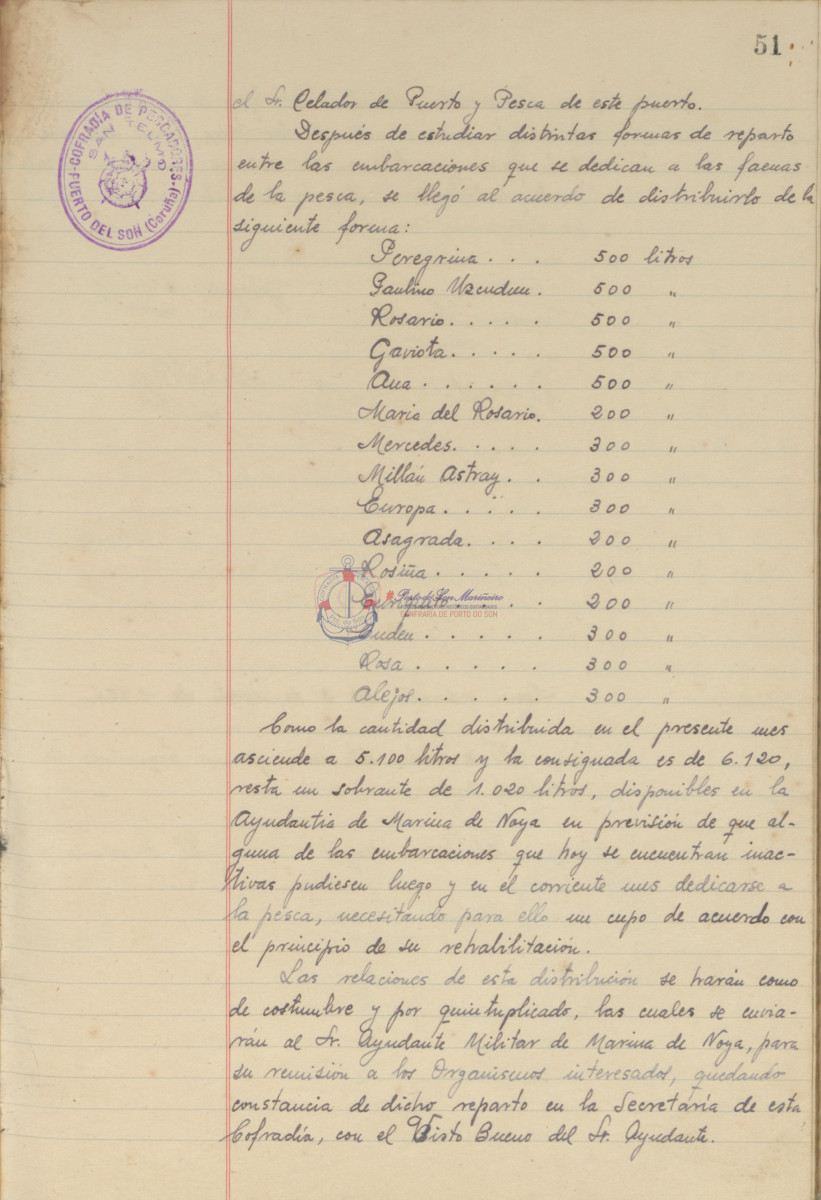 51
COFRADÍA DE PESCADORES
SAN TELMO
PUERTO DEL SON (Coruña)
el Sr. Celador de Puerto y Pesca de este puerto.
Después de estudiar distintas formas de reparto
entre las embarcaciones que se dedican a las faenas
de la pesca, se llegó al acuerdo de distribuirlo de la
siguiente forma:
Peregrina . . . 500 litros
Paulino Uzcudun . 500 "
Rosario . . . . . 500 "
Gaviota . . . . . 500 "
Ana . . . . . . 500 "
Maria del Rosario. 200 "
Mercedes. . . . . 300 "
Millán Astray . . 300 "
Europa . . . . . 300 "
Asagrada. . . . 200 "
Rosiña . . . . . 200 "
. . . 200 "
. . . . . 300 "
Rosa . . . . . 300 "
Alejos . . . . . 300 "
Porto do Son Mariñeiro
CONFRARIA DE PORTO DO SON
Como la cantidad distribuida en el presente mes
asciende a 5.100 litros y la consignada es de 6.120,
resta un sobrante de 1.020 litros, disponibles en la
Ayudantia de Marina de Noya en previsión de que al-
guna de las embarcaciones que hoy se encuentran inac-
tivas pudiesen luego y en el corriente mes dedicarse a
la pesca, necesitando para ello un cupo de acuerdo con
el principio de su rehabilitación.
Las relaciones de esta distribución se harán como
de costumbre y por quintuplicado, las cuales se envia-
rán al Sr. Ayudante Militar de Marina de Noya, para
su remisión a los Organismos interesados, quedando
constancia de dicho reparto en la Secretáría de esta
Cofradía, con el Visto Bueno del Sr. Ayudante.